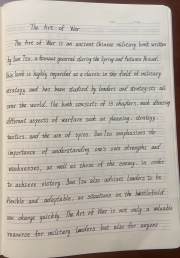 The Art of War
The Art of War is an ancient Chinese military book written
by Sun Tzu, a famous general during the Spring and Autumn Period.
This book is highly regarded as a classic in the field of military
strategy and has been studied by leaders and strategists all
over the world. The book consists of 13 chapters, each covering
different aspects of warfare such as planning, strategy,
tactics, and the use of spies. Sun Tzu emphasizes the
importance of understanding one's own strengths and
weaknesses, as well as those of the enemy, in order
to achieve victory. Sun Tzu also advises leaders to be
flexible and adaptable, as situations on the battlefield
can change quickly. The Art of War is not only a valuable
resource for military leaders but also for anyone